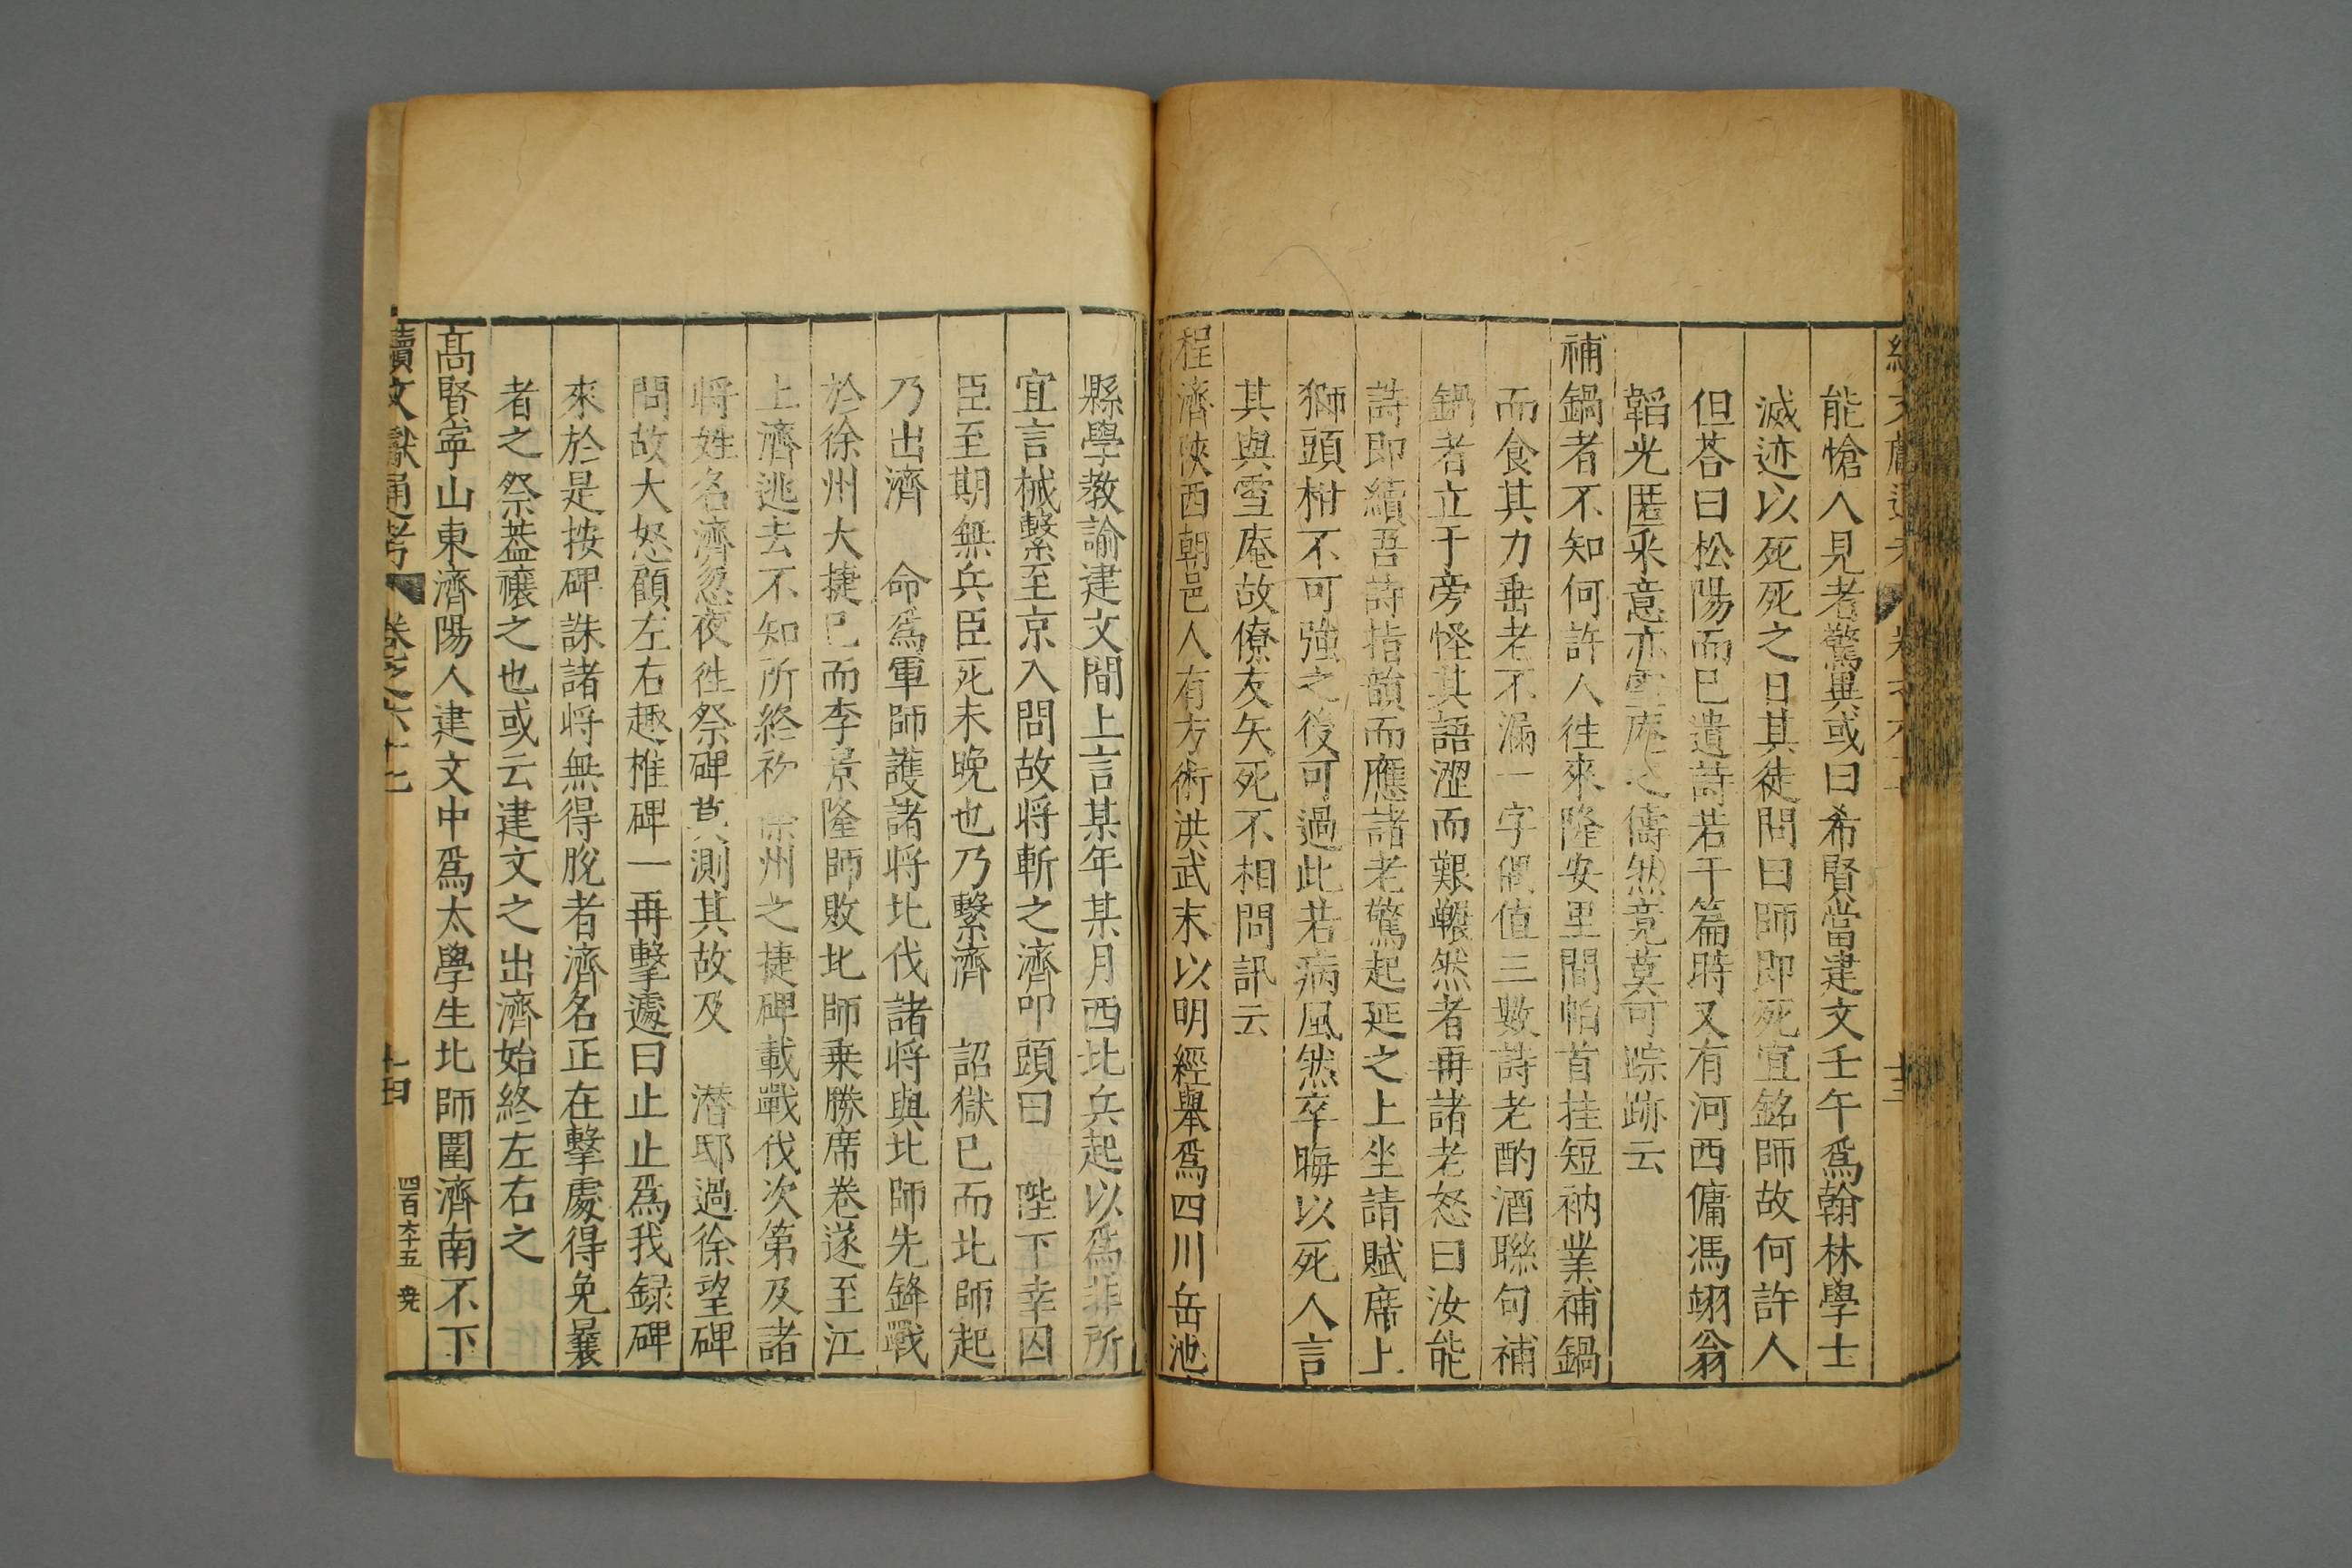 能愴人見者驚異或曰希賢當建文壬午爲翰林學士
滅迹以死死之日其徒問曰師即死宜銘師故何許人
但荅曰松陽而巳遺詩若干篇時又有河西傭馮翊翁
韜光匿采意亦雪庵之儔然竟莫可踪跡云
補鍋者不知何許人往來隆安里間帕首挂短衲業補鍋
而食其力垂老不漏一字偶值三數詩老酌酒聯句補
鍋者立于旁怪其語澀而艱輾然者再諸老怒曰汝能
詩即續吾詩指韻而應諸老驚起延之上坐請賦席上
獅頭柑不可強之後可過此若病風然卒晦以死人言
其與雪庵故僚友矢死不相問訊云
程濟陝西朝邑人有方術洪武末以明經舉爲四川岳池
縣學教諭建文間上言某年某月西北兵起以爲非所
宜言械繫至京入問故将斬之濟叩頭曰 陛下幸囚
臣至期無兵臣死未晚也乃繫濟 詔獄巳而北師起
乃出濟 命爲軍師護諸将北伐諸将與北師先鋒戰
於徐州大捷巳而李景隆師敗北師乗勝席卷遂至江
上濟逃去不知所終初 徐州之捷碑載戰伐次第及諸
将姓名濟忽夜徃祭碑莫測其故及 潜邸過徐望碑
問故大怒顧左右趣椎碑一再擊遽曰止止爲我録碑
來於是按碑誅諸将無得脫者濟名正在擊處得免曩
者之祭葢禳之也或云建文之出濟始終左右之
髙賢寧山東濟陽人建文中爲太學生北師圍濟南不下
續文獻通考 卷之六十七 十四 四百六十五 尭